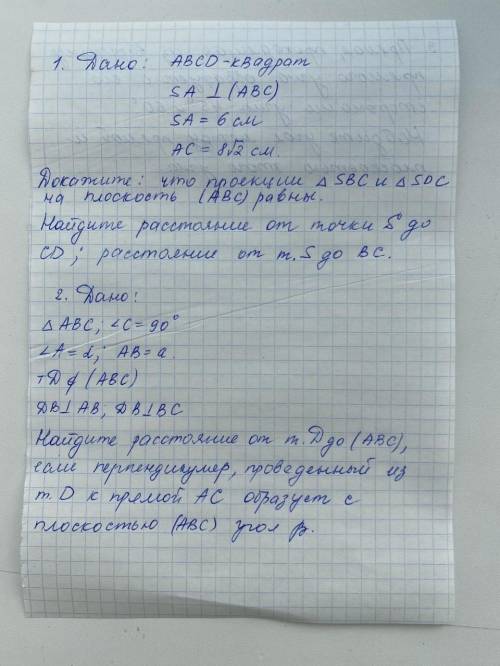 1. Дано: ABCD-квадрат
SA ⊥ (ABC)
SA = 6 см
AC = 8√2 см.
Докажите: что проекции △ SBC и △ SDC
на плоскость (ABC) равны.
Найдите расстояние от точки S до
CD; расстояние от т. S до BC.
2. Дано:
△ ABC; ∠C = 90°
∠A = α; AB = a.
т D ∉ (ABC)
DB ⊥ AB, DB ⊥ BC
Найдите расстояние от т. D до (ABC),
если перпендикуляр, проведенный из
т. D к прямой AC образует с
плоскостью (ABC) угол β.